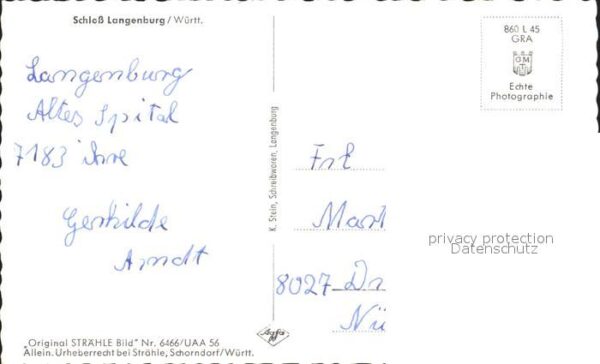 Schloß Langenburg / Württ.
Langenburg
Altes Spital
7183 ihre
Gerhilde
Arndt
„Original STRÄHLE Bild" Nr. 6466/UAA 56
Allein. Urheberrecht bei Strähle, Schorndorf/Württ.
K. Stein, Schreibwaren, Langenburg
Agfa
860 L 45
GRA
GM
Echte
Photographie
Frl
8027 Dr
Nü
privacy protection
Datenschutz